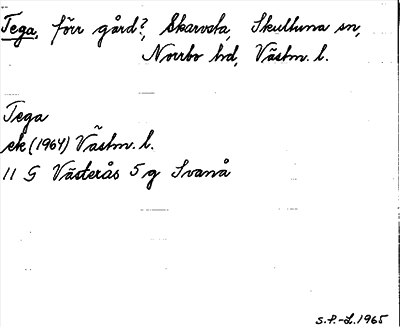 Tega, förr gård?, Skarvsta, Skultuna sn,
Norrbo hd, Västm. l.
Tega
ek (1964) Västm. l.
11 G Västerås 5 g Svanå
S.P.-L. 1965